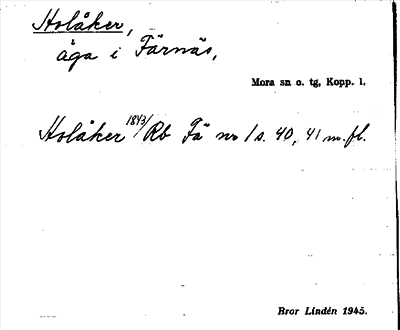 Holåker,
äga i Färnäs,
Mora sn o. tg, Kopp. l.
Holåker 1843/Rb Fä nr 1 s. 40, 41 m. fl.
Bror Lindén 1945.